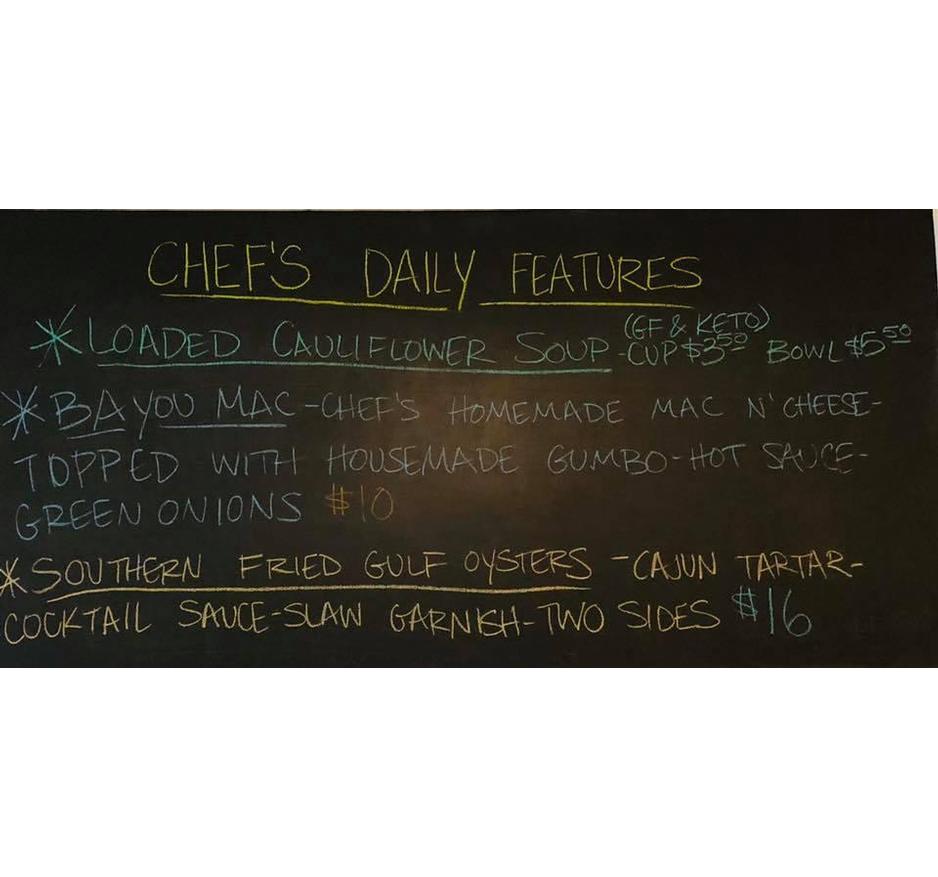 CHEF'S DAILY FEATURES
*LOADED CAULIFLOWER SOUP (GF & KETO) -CUP $3.50 BOWL $5.50
*BAYOU MAC-CHEF'S HOMEMADE MAC N' CHEESE-
TOPPED WITH HOUSEMADE GUMBO-HOT SAUCE-
GREEN ONIONS $10
*SOUTHERN FRIED GULF OYSTERS -CAJUN TARTAR-
COCKTAIL SAUCE-SLAW GARNISH-TWO SIDES $16